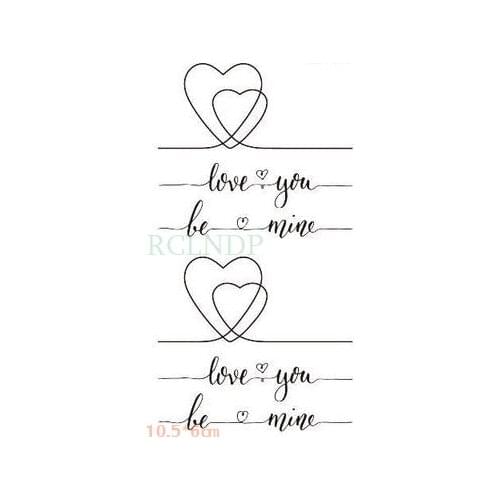 love you
be mine
RCLNDP
love you
be mine
10.5*6cm